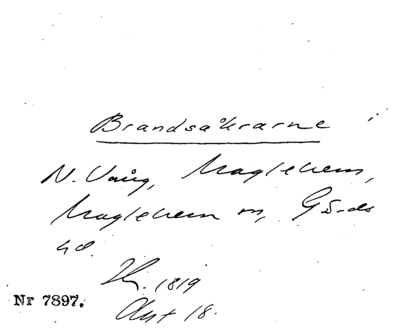 Brandsåkrarne i
N. Vång, Maglehem,
Maglehem sn, Gärds
hd.
1819
Akt 18.
Nr 7897.